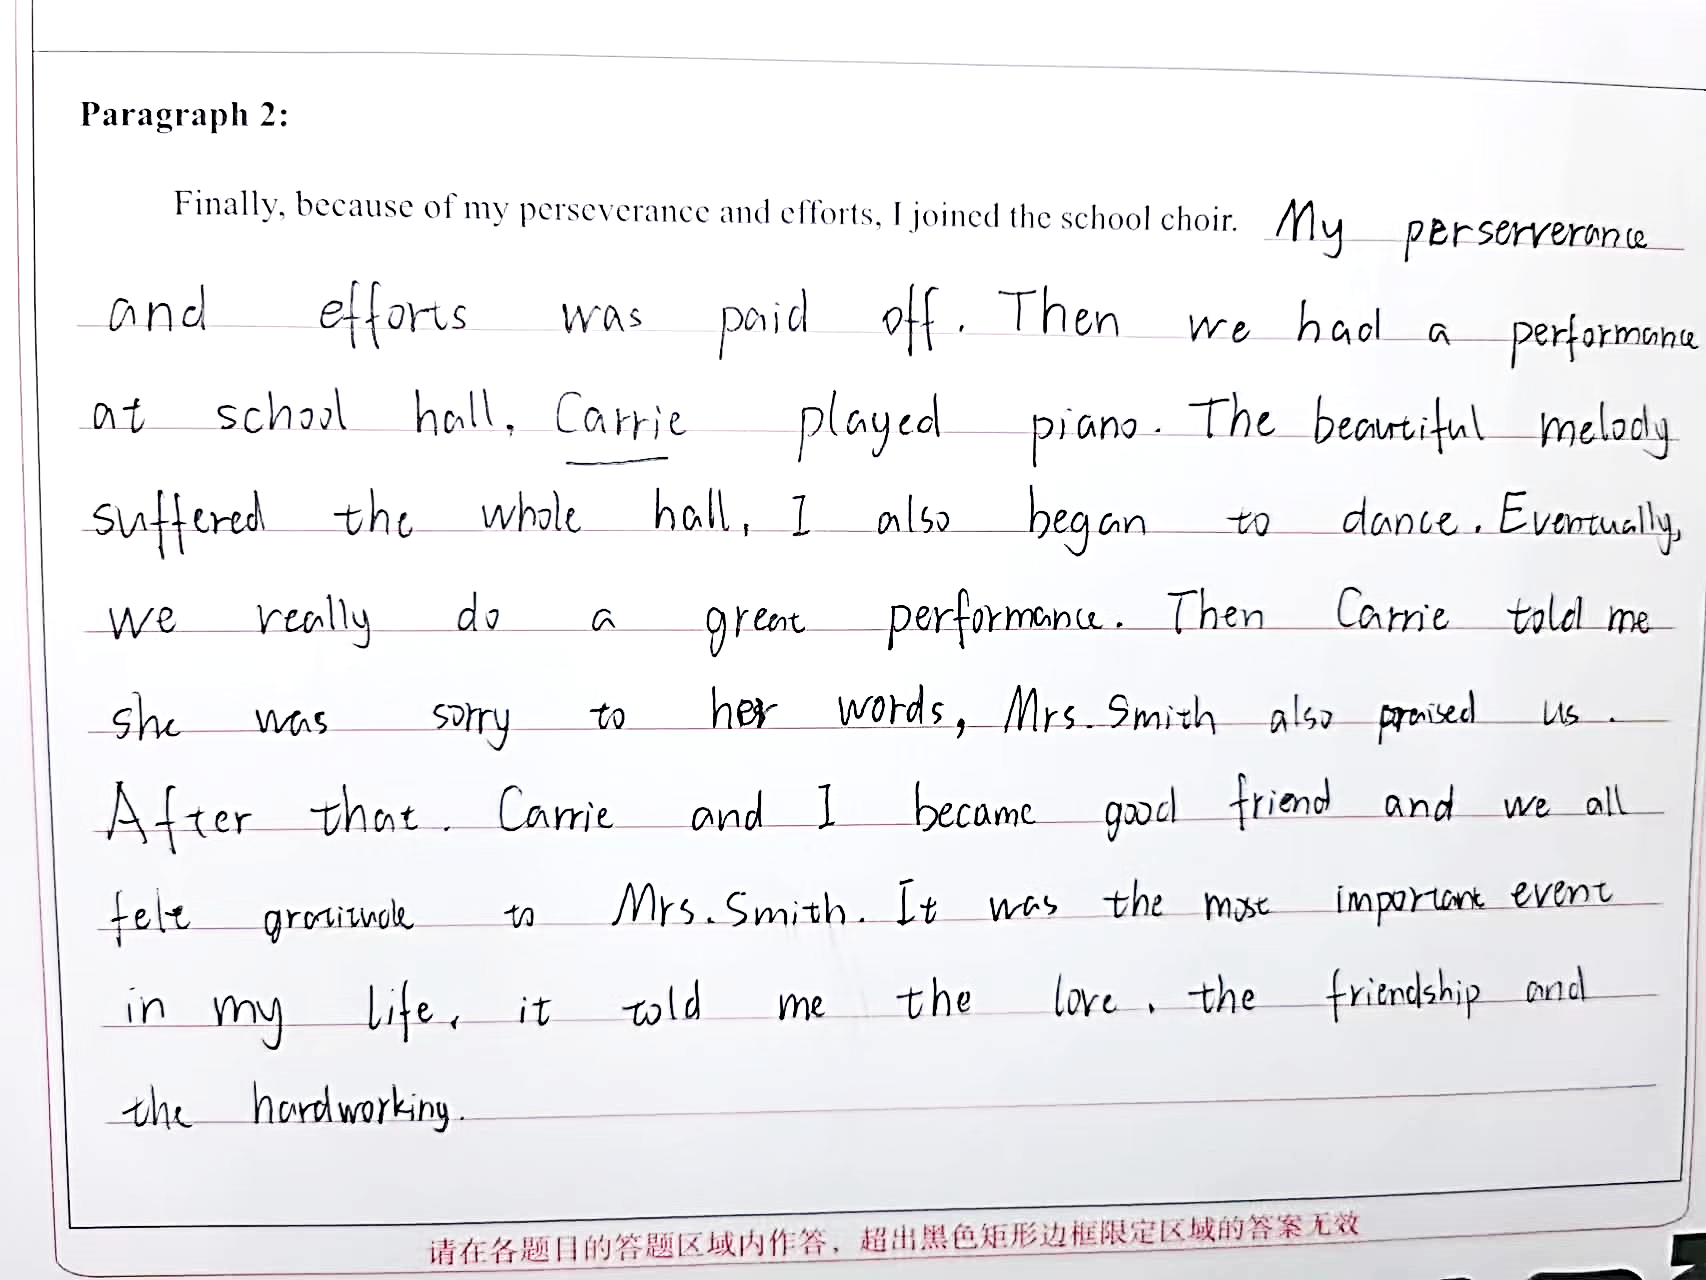 Paragraph 2:
Finally, because of my perseverance and efforts, I joined the school choir. My perserverance
and efforts was paid off. Then we had a performance
at school hall, Carrie played piano. The beautiful melody
suffered the whole hall, I also began to dance. Eventually,
we really do a great performance. Then Carrie told me
she was sorry to her words, Mrs. Smith also praised us.
After that. Carrie and I became good friend and we all
felt gratitude to Mrs. Smith. It was the most important event
in my life, it told me the love, the friendship and
the hardworking.
请在各题目的答题区域内作答，超出黑色矩形边框限定区域的答案无效